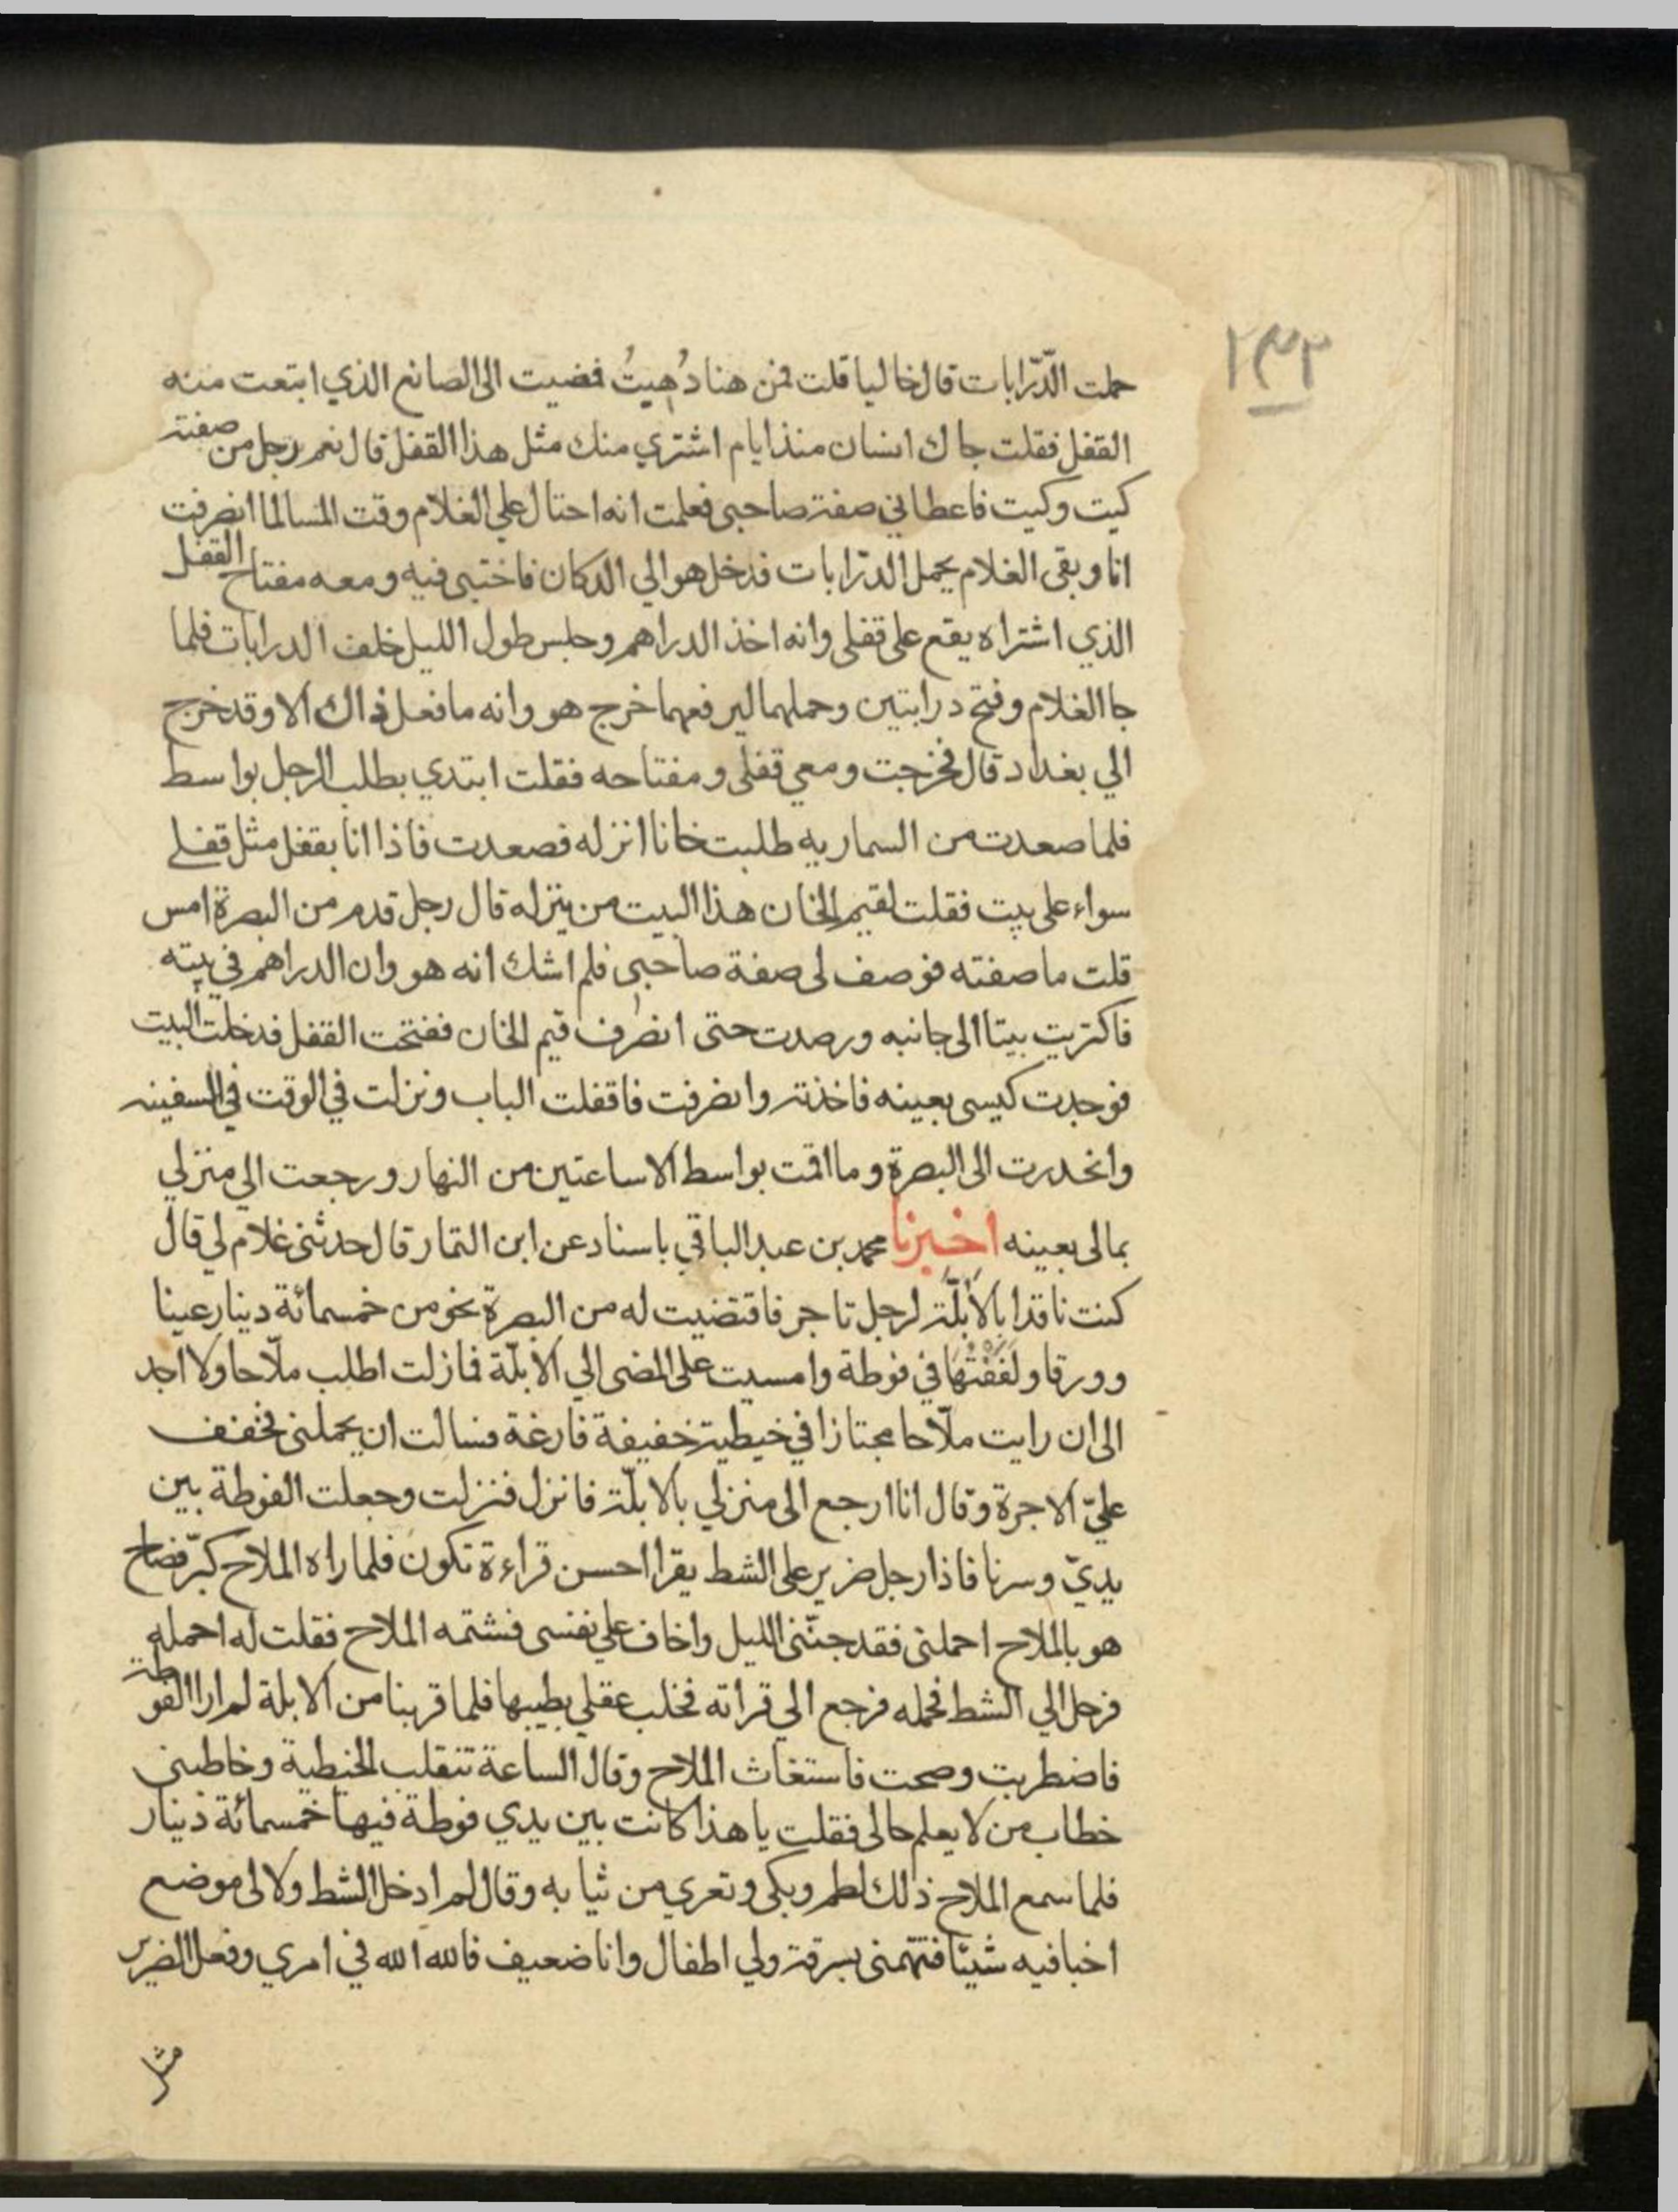 ١٣٣
حملت الدّرّابات قال خاليا قلت فمن هنا دُهِيتُ فمضيت الى الصانع الذي ابتعت منه
القفل فقلت جاك انسان منذ ايام اشتري منك مثل هذا القفل قال نعم رجل من صفته
كيت وكيت فاعطاني صفة صاحبى فعلمت انه احتال علي الغلام وقت المسا لما انصرفت
انا وبقى الغلام يحمل الدرّابات فدخل هو الي الدكان فاختبى فيه ومعه مفتاح القفل
الذي اشتراه يقع على قفلى وانه اخذ الدراهم وجلس طول الليل خلف الدرابات فلما
جا الغلام وفتح درابتين وحملهما ليرفعهما خرج هو وانه ما فعل ذاك الا وقد خرج
الي بغداد قال فخرجت ومعي قفلى ومفتاحه فقلت ابتدي بطلب الرجل بواسط
فلما صعدت من السماريه طلبت خانا انزله فصعدت فاذا انا بقفل مثل قفلے
سواء على بيت فقلت لقيم الخان هذا البيت من ينزله قال رجل قدم من البصرة امس
قلت ما صفته فوصف لى صفة صاحبى فلم اشك انه هو وان الدراهم في بيته
فاكتريت بيتا الى جانبه ورصدت حتى انصرف قيم الخان ففتحت القفل فدخلت البيت
فوجدت كيسى بعينه فاخذته وانصرفت فاقفلت الباب ونزلت في الوقت في السفينه
وانحدرت الى البصرة وما اقمت بواسط الا ساعتين من النهار ورجعت الي منزلي
بمالى بعينه اخبرنا محمد بن عبد الباقي باسناد عن ابن التمار قال حدثنى غلام لي قال
كنت ناقدا بالأُبُلّة لرجل تاجر فاقتضيت له من البصرة نحو من خمسمائة دينار عينا
وورقا ولففتُها في فوطة وامسيت على المضى الي الابلّة فما زلت اطلب ملّاحا ولا اجد
الى ان رايت ملّاحا مجتازا في خيطية خفيفة فارغة فسالت ان يحملنى فخفف
عليّ الاجرة وقال انا ارجع الى منزلي بالابلّة فانزل فنزلت وجعلت الفوطة بين
يديّ وسرنا فاذا رجل ضرير على الشط يقرا احسن قراءة تكون فلما راه الملاح كبّر فصاح
هو بالملاح احملنى فقد جنّنى الليل واخاف علي نفسى فشتمه الملاح فقلت له احمله
فرحل الي الشط فحمله فرجع الي قراته فخلب عقلي بطيبها فلما قربنا من الابلة لم ار الفوطة
فاضطربت وصحت فاستغاث الملاح وقال الساعة تنقلب الخيطية وخاطبنى
خطاب من لا يعلم حالى فقلت يا هذا كانت بين يدي فوطة فيها خمسمائة دينار
فلما سمع الملاح ذلك لطم وبكى وتعري من ثيابه وقال لم ادخل الشط ولا لى موضع
اخبا فيه شيئا فتتهمنى بسرقة ولي اطفال وانا ضعيف فالله الله في امري وفعل الضرير
مثل